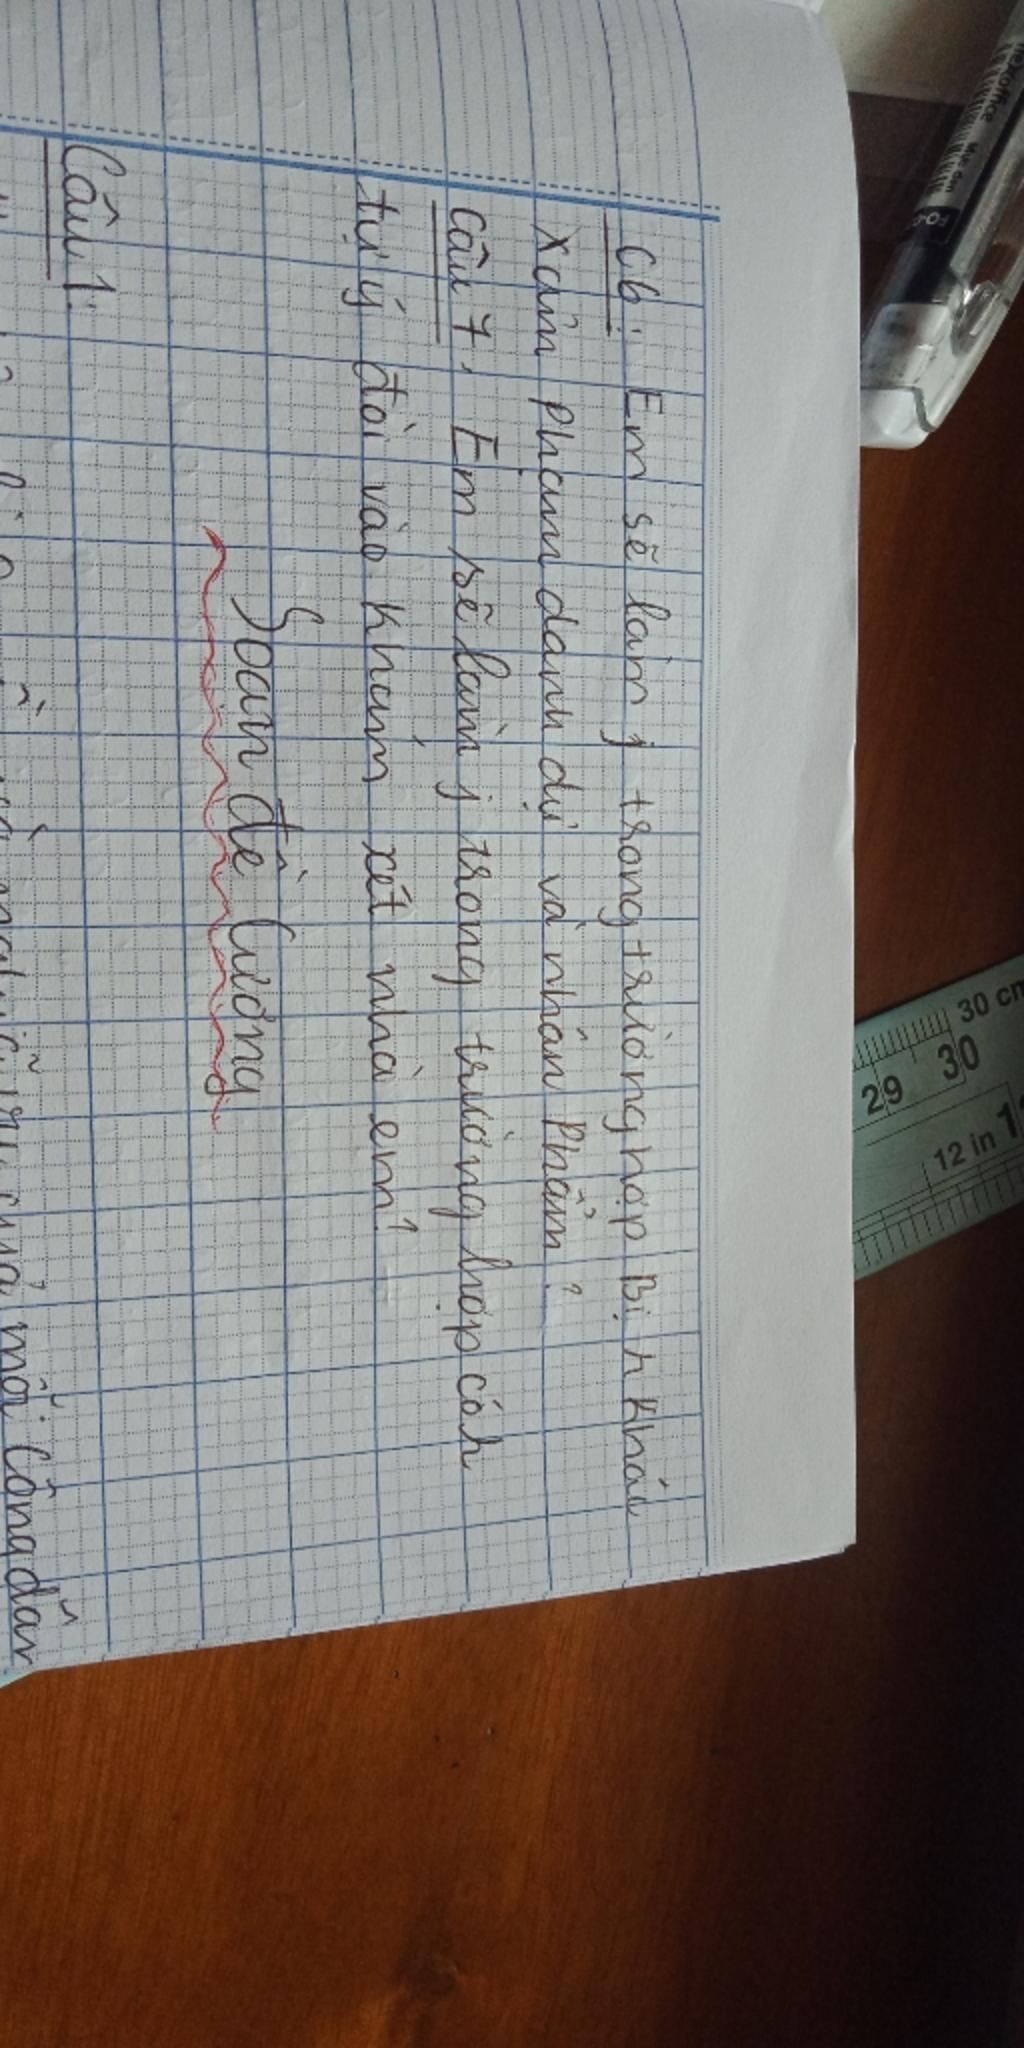 C6: Em sẽ làm j trong trường hợp Bị n Khác
xâm Phạm danh dự và nhân Phẩm?
Câu 7, Em sẽ làm j trong trường hợp có n
tự ý đòi vào Khám xét nhà em?
Soạn đề Cương
Câu 1:
của mỗi Công dân
flexoffice
FO-
30 cm
29 30
12 in